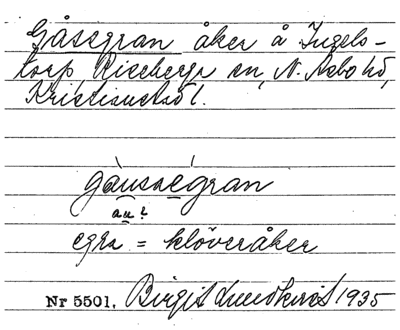 Gåsegran åker å Ingels-
torp, Riseberga sn, N. Åsbo hd,
Kristianst. l.
gàusaegrán
au?
egra = klöveråker
Nr 5501. Birgit Lundkvist 1935